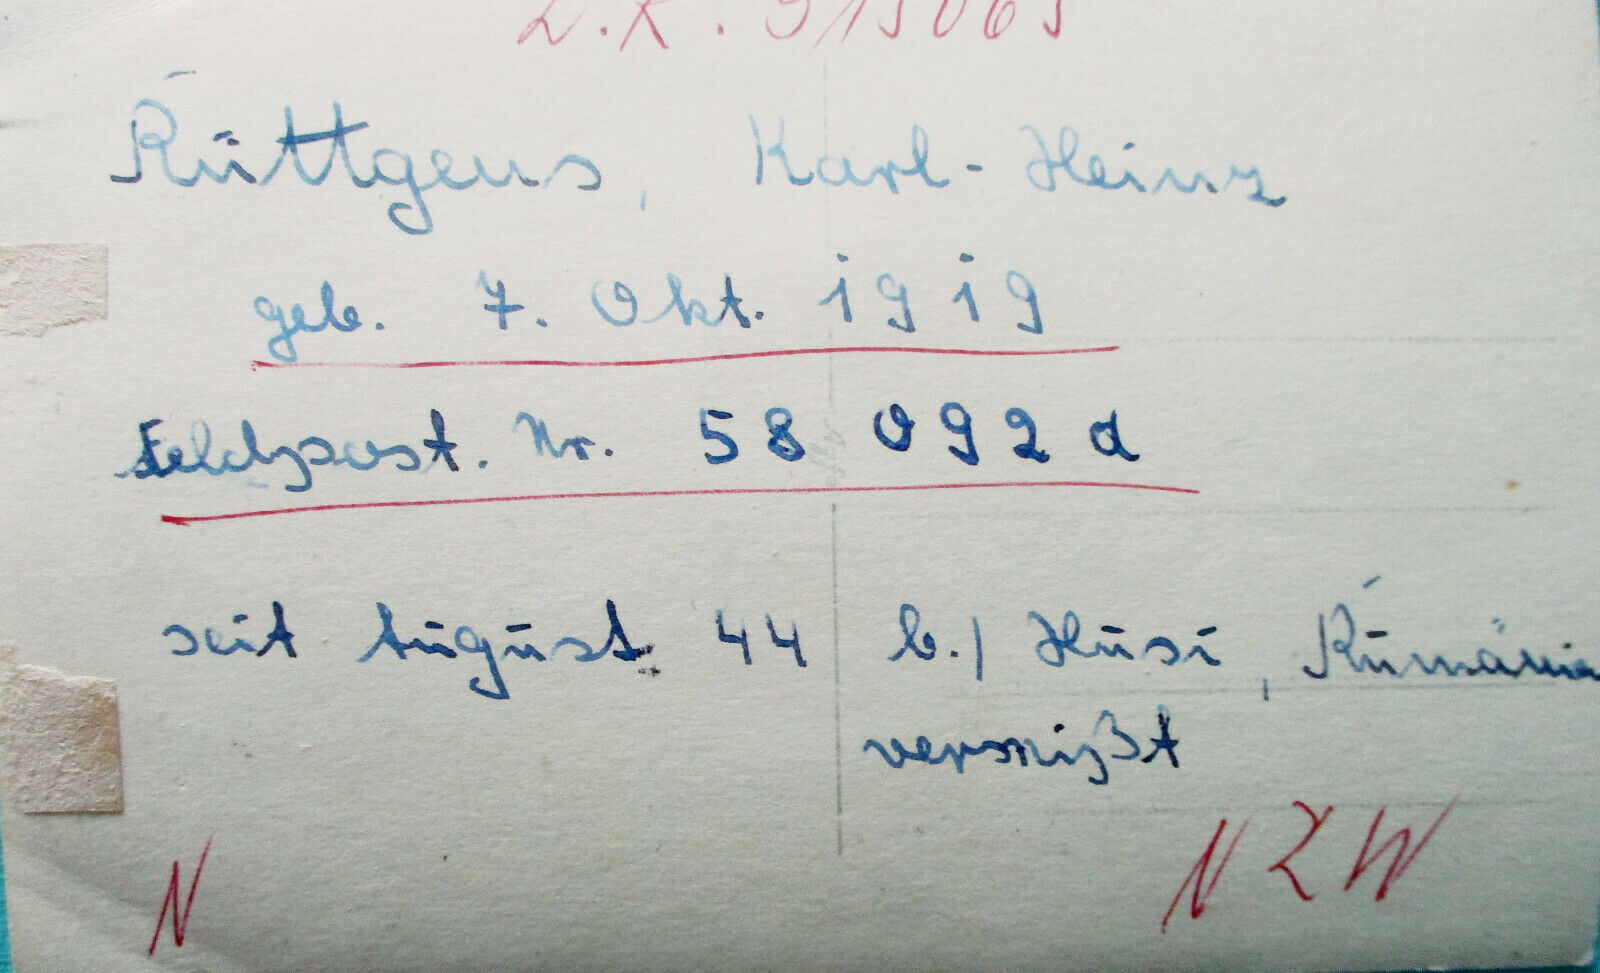 Rüttgens, Karl-Heinz
geb. 7. Okt. 1919
Feldpost. Nr. 58 092 d
seit August 44 b./ Husi, Rumänien
vermißt
N
N Z W